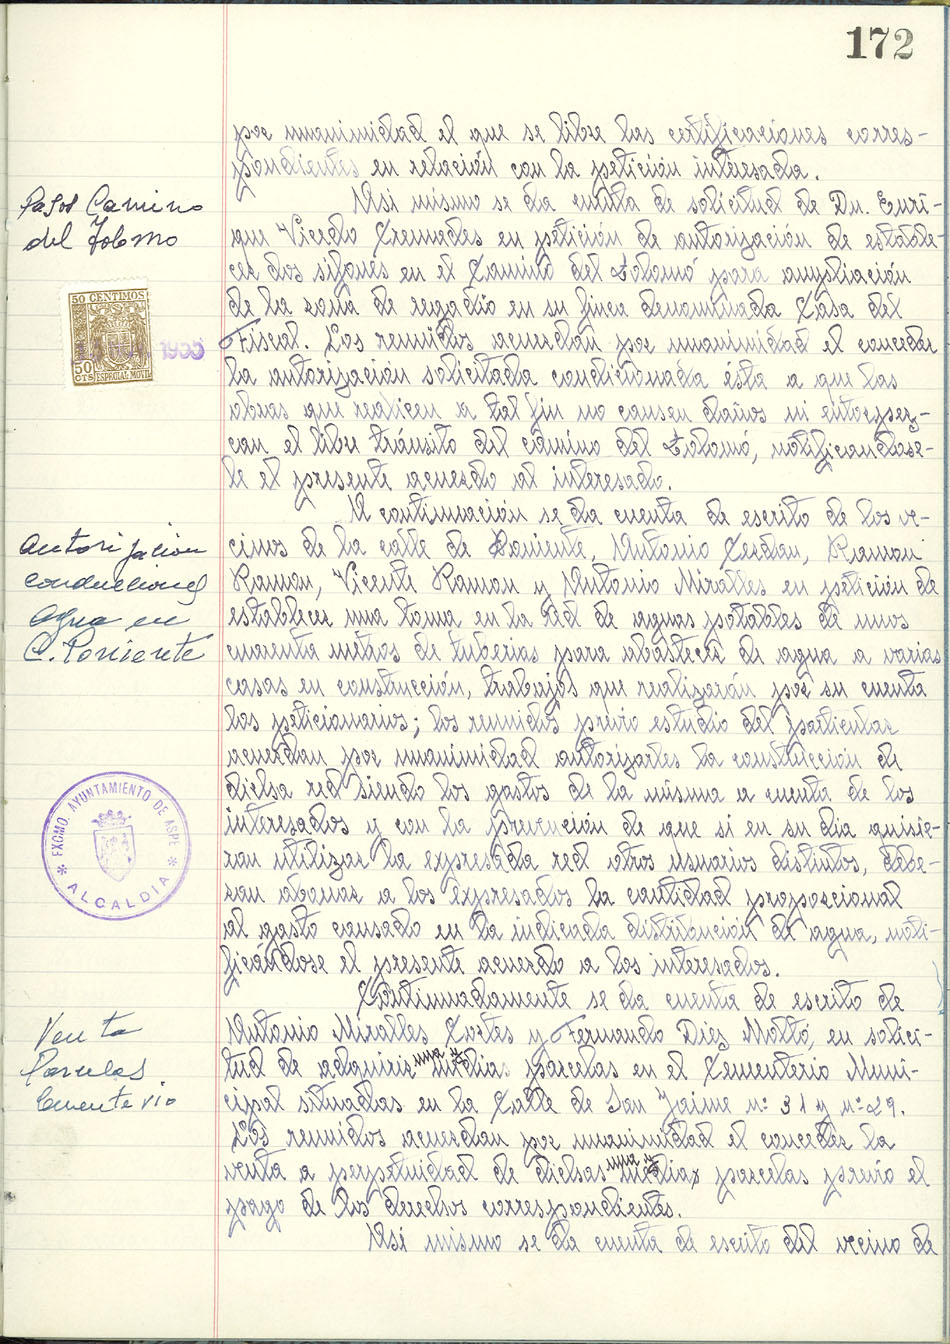 172
por unanimidad el que se libre las certificaciones corres-
pondientes en relación con la petición interesada.
Pasos Camino
del Tolomo
Asi mismo se da cuenta de solicitud de Dn. Enri-
que Vicedo Cremades en petición de autorización de estable-
cer dos sifones en el Camino del Tolomó para ampliación
de la zona de regadío en su finca denominada Casa del
Fiscal. Los reunidos acuerdan por unanimidad el conceder
la autorización solicitada condicionada ésta a que las
obras que realicen a tal fin no causen daños ni entorpez-
can el libre tránsito del camino del Tolomó, notificandose-
le el presente acuerdo al interesado.
50 CENTIMOS
50
CTS ESPECIAL MOVIL
Autorización
conducciones
Agua en
C. Poniente
A continuación se da cuenta de escrito de los ve-
cinos de la calle de Poniente, Antonio Cerdan, Ramon
Ramon, Vicente Ramon y Antonio Miralles en petición de
establecer una toma en la red de aguas potables de unos
cuarenta metros de tuberias para abastecer de agua a varias
casas en construcción, trabajos que realizarán por su cuenta
los peticionarios; los reunidos previo estudio del particular
acuerdan por unanimidad autorizarles la constucción de
dicha red siendo los gastos de la misma a cuenta de los
interesados y con la prevención de que si en su dia quisie-
ran utilizar la expresada red otros usuarios distintos, debe-
ran abonar a los expresados la cantidad proporcional
al gasto causado en la indicada distribución de agua, noti-
ficándose el presente acuerdo a los interesados.
EXCMO. AYUNTAMIENTO DE ASPE
* ALCALDIA *
Venta
Parcelas
Cementerio
Continuadamente se da cuenta de escrito de
Antonio Miralles Cortes y Fernando Diez Moltó, en solici-
tud de adquirir una y media parcelas en el Cementerio Muni-
cipal situadas en la Calle de San Jaime nº 31 y nº 29.
Los reunidos acuerdan por unanimidad el conceder la
venta a perpetuidad de dichas una y media parcelas previo el
pago de los derechos correspondientes.
Asi mismo se da cuenta de escrito del vecino de